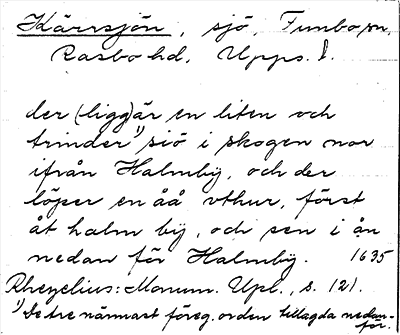 Kärrsjön, sjö, Funbo sn,
Rasbo hd, Upps. l.
der (ligg)är en liten och
trinder¹) siö i skogen nor
ifrån Halmbÿ, och der
löper en åå vthur, först
åt halm bÿ, och sen i ån
nedan för Halmbÿ. 1635
Rhezelius: Monum. Upl., s. 121.
¹) De tre närmast föreg. orden tillagda nedan-
för.